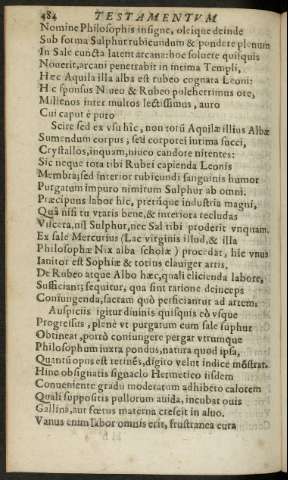 484 TESTAMENTVM
Nomine Philosophis insigne, oleique deinde
Sub forma Sulphur rubicundum & pondere plenum
In Sale cuncta latent arcana: hoc soluere quisquis
Nouerit, arcani penetrabit in intima Templi,
Hæc Aquila illa alba est rubeo cognata Leoni:
Hc sponsus Niueo & Rubeo polcherrimus ore,
Millenos inter multos lectissimus, auro
Cui caput è puro
Scire sed ex vsu hic, non torũ Aquilæ illius Albæ
Sumendum corpus, sed corporei intima succi,
Crystallos, inquam, niueo candore nitentes:
Sic neque tota tibi Rubei capienda Leonis
Membra, sed interior rubicundi sanguinis humor
Purgatum impuro nimirum Sulphur ab omni.
Præcipuus labor hic, preriique industria magni,
Quã nisi tu vtaris bene, & interiora recludas
Viscera, nil Sulphur, nec Sal tibi proderit vnquam.
Ex sale Mercurius (Lac virginis illud, & illa
Philosophæ Nix alba scholæ) procedat, hic vnus
Ianitor est Sophiæ & totius clauiger artis.
De Rubeo atque Albo hæc, quali elicienda labore,
Sufficiant; sequitur, qua sint ratione deinceps
Coniungenda, sacram quò perficiantur ad artem.
Auspiciis igitur diuinis quisquis eò vsque
Progressus, plenè vt purgatum eum sale suphur
Obtineat, porrò coniungere pergat vtrumque
Philosophum iuxta pondus, natura quod ipsa,
Quantũ opus est rermés, digito velut indice mõstrat.
Hinc obsignatis signaclo Hermetico iisdem
Conueniente gradu moderatum adhibeto calorem
Quali suppositis pullorum auida, incubat ouis
Gallina, aut fœtus materna crescit in aluo.
Vanus enim labor omnis erit, frustranea cura